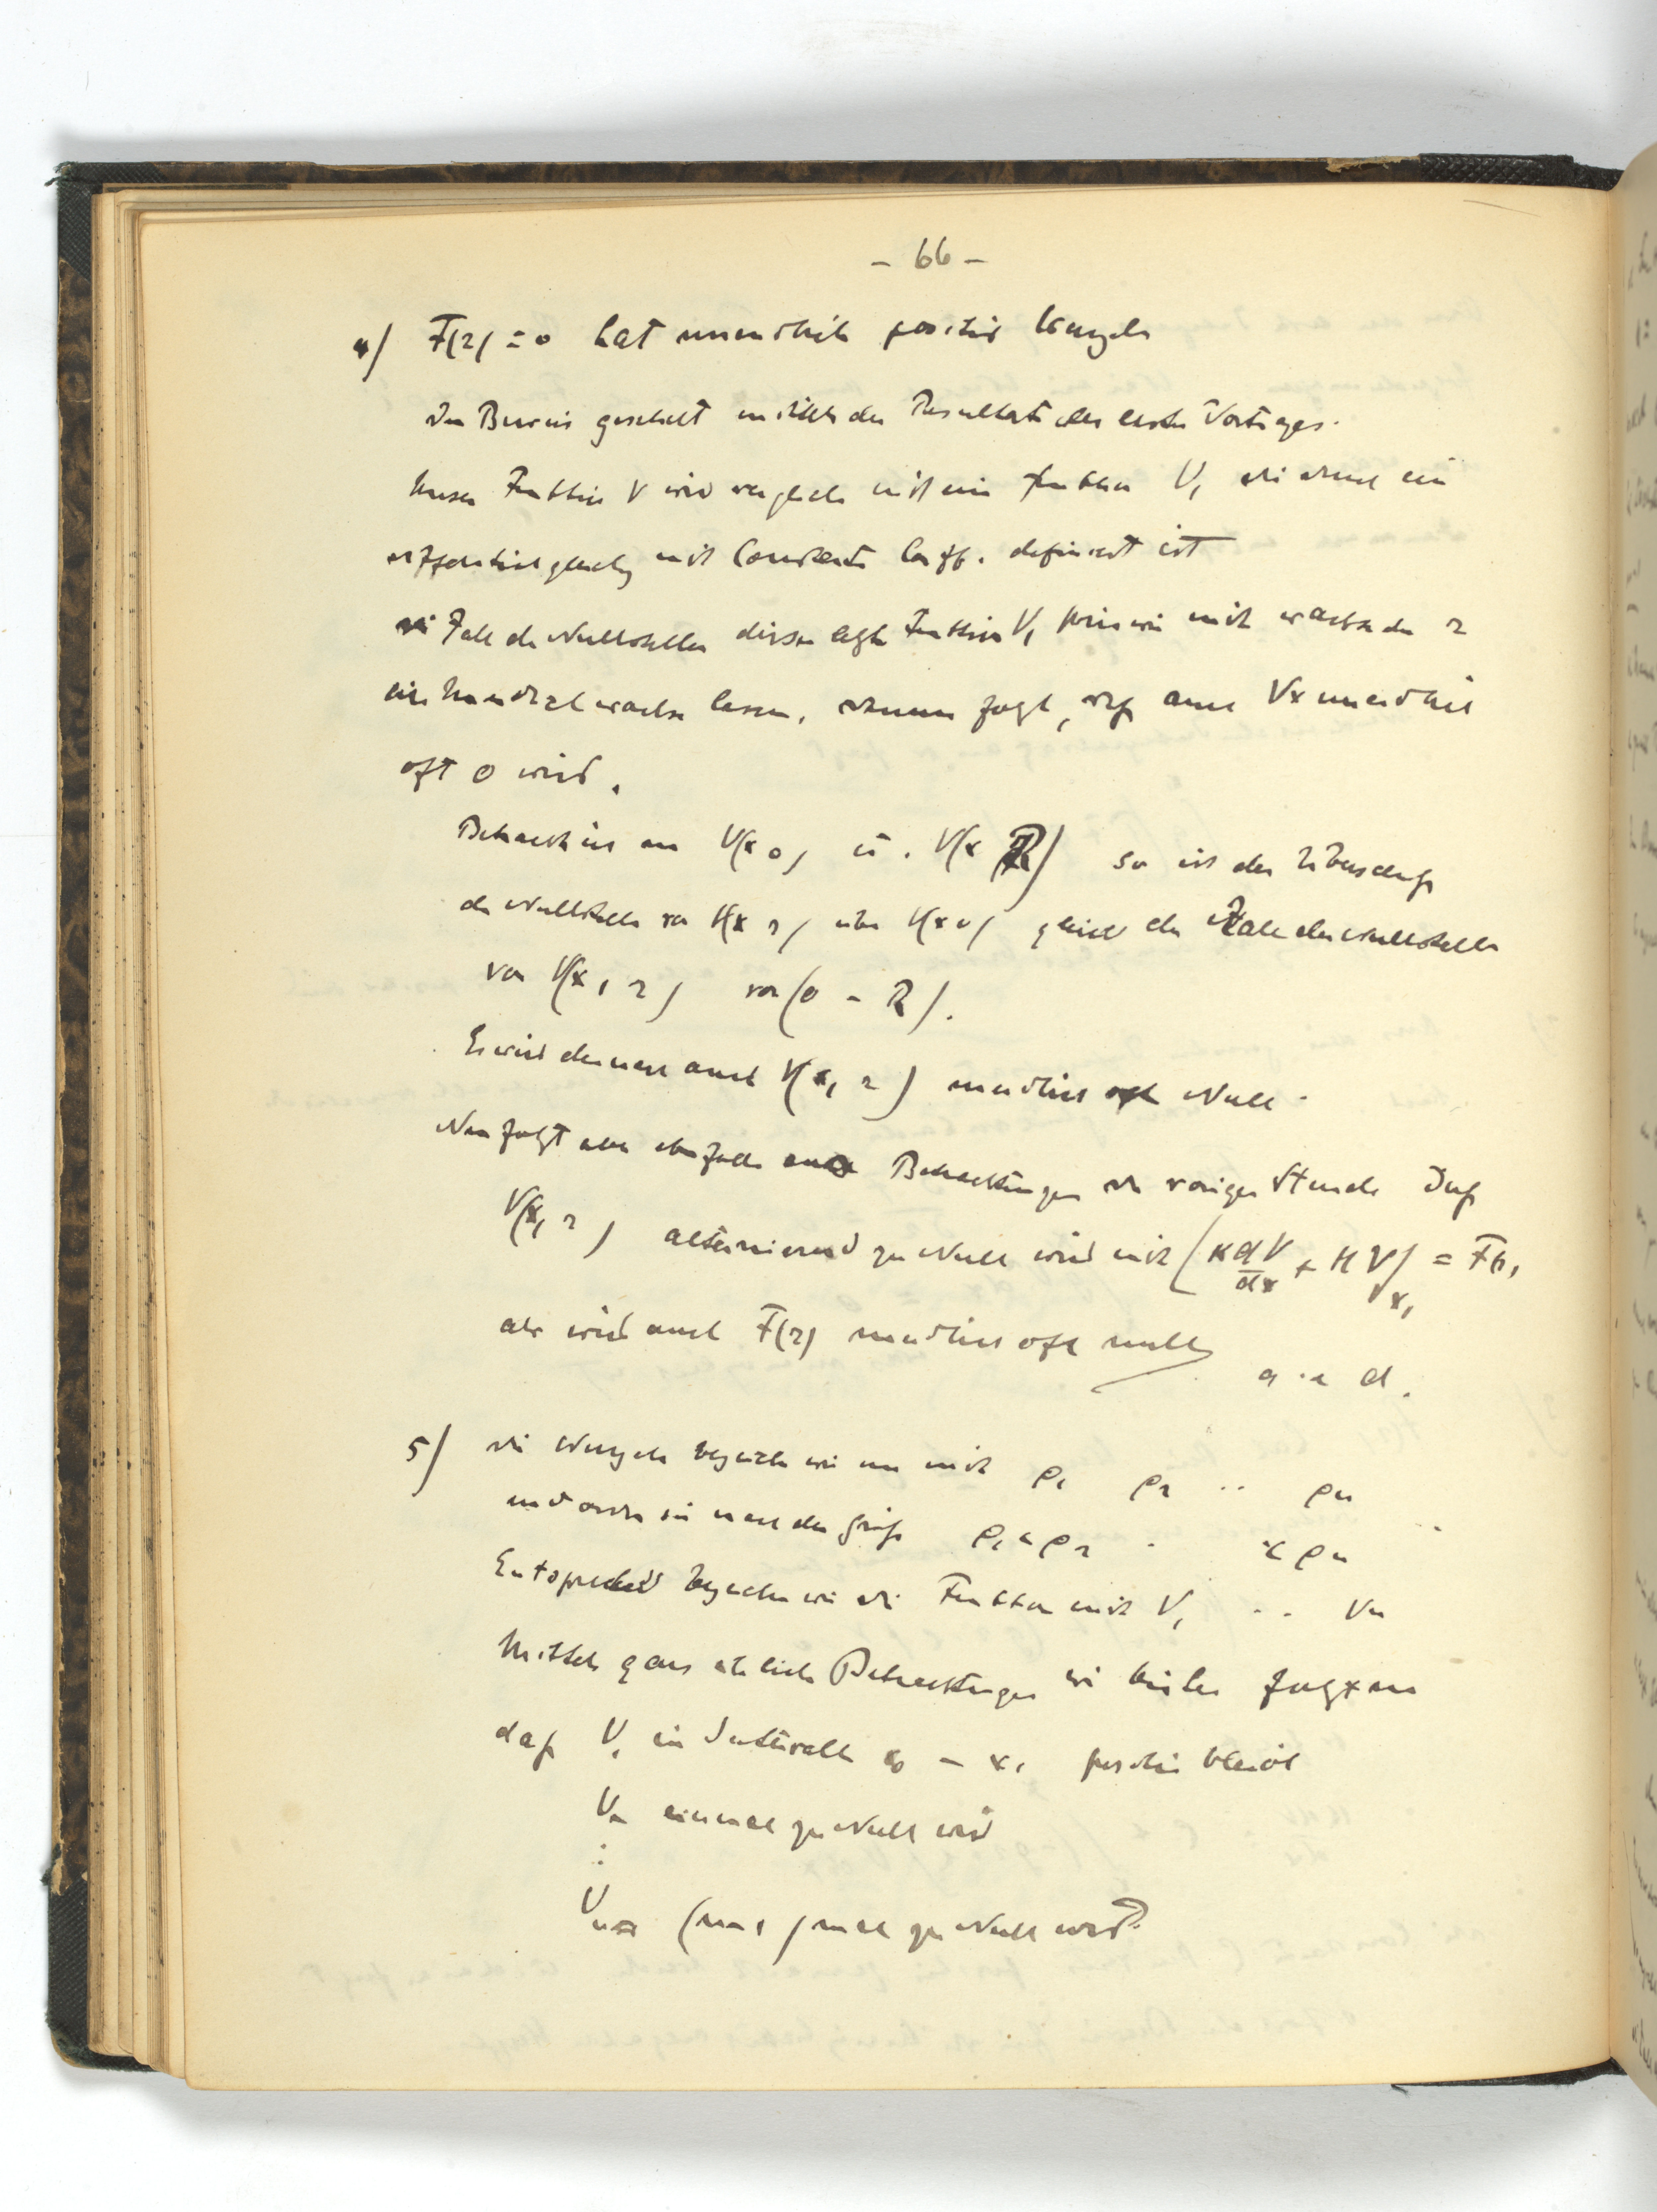 - 66 -
4) F(r) = 0 hat unendlich positive Wurzeln
Der Beweis geschieht mittels der Resultate des ersten Vortrages.
Unsere Funktion V wird verglichen mit einer Funktion V, die durch eine
Differentialgleichg mit Constanten Coeff. definiert ist
die Zahl der Nullstellen dieser letzten Funktion V, können wir mit wachsendem r
ins Unendliche wachsen lassen, daraus folgt, daß auch Vx unendlich
oft 0 wird.
Betrachten wir nun V(x 0) u. V(x R) so ist der Überschuß
der Nullstellen von V(x r) über V(x 0) gleich der Zahl der Nullstellen
von V(x, r) von (0 - R).
Es wird demnach auch V(x, r) unendlich oft Null.
Nun folgt aber ebenfalls aus Betrachtungen der vorigen Stunde daß
V(x, r) alternierend zu Null wird mit (K dV/dx + H V)x, = F(r)
also wird auch F(r) unendlich oft null
q. e. d.
5) Die Wurzeln bezeichnen wir nun mit ρ1 ρ2 .. ρn
und ordnen sie nach der Größe ρ1 < ρ2 . < ρn
Entsprechend bezeichnen wir die Funktion mit V1 .. Vn
Mittels ganz ähnlicher Betrachtungen wie bisher folgt nun
daß V1 im Intervalle x0 - x1 positiv bleibt
V2 einmal zu Null wird
:
Vn (n-1) mal zu Null wird.